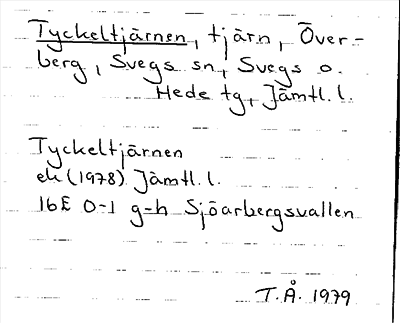 Tyckeltjärnen, tjärn, Över-
berg, Svegs sn, Svegs o.
Hede tg, Jämtl. l.
Tyckeltjärnen
ek (1978) Jämtl. l.
16E 0-1 g-h Sjöarbergsvallen
T.Å. 1979